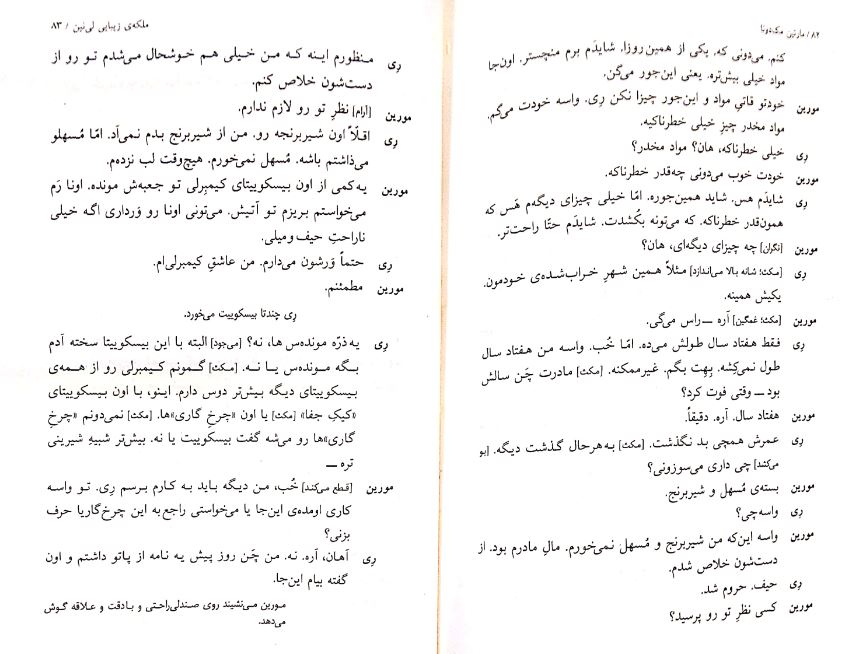 ۸۲ / مارتین مک‌دونا
کنم. می‌دونی که. یکی از همین روزا. شایدَم برم منچستر. اون‌جا
مواد خیلی بیش‌تره. یعنی این‌جور می‌گن.
مورین خودتو قاتیِ مواد و این‌جور چیزا نکن رِی. واسه خودت می‌گم.
مواد مخدر چیزِ خیلی خطرناکیه.
رِی خیلی خطرناکه، هان؟ مواد مخدر؟
مورین خودت خوب می‌دونی چه‌قدر خطرناکه.
رِی شایدَم هس. شاید همین‌جوره. امّا خیلی چیزای دیگه‌م هَس که
همون‌قدر خطرناکه. که می‌تونه بکُشدت. شایدَم حتّا راحت‌تر.
مورین [نگران] چه چیزای دیگه‌ای، هان؟
رِی [مکث؛ شانه بالا می‌اندازد] مثلاً همین شهرِ خراب‌شده‌ی خودمون.
یکیش همینه.
مورین [مکث؛ غمگین] آره ــ راس می‌گی.
رِی فقط هفتاد سال طولش می‌ده. امّا خُب. واسه من هفتاد سال
طول نمی‌کِشه. بِهِت بگم. غیرممکنه. [مکث] مادرت چَن سالش
بود ــ وقتی فوت کرد؟
مورین هفتاد سال. آره. دقیقاً.
رِی عمرش همچی بد نگذشت. [مکث] به‌هرحال گذشت دیگه. [بو
می‌کند] چی داری می‌سوزونی؟
مورین بسته‌ی مُسهل و شیربرنج.
رِی واسه‌چی؟
مورین واسه این‌که من شیربرنج و مُسهل نمی‌خورم. مالِ مادرم بود. از
دست‌شون خلاص شدم.
رِی حیف. حروم شد.
مورین کسی نظرِ تو رو پرسید؟
ملکه‌ی زیبایی لی‌نین / ۸۳
رِی منظورم اینه که من خیلی هم خوشحال می‌شدم تو رو از
دست‌شون خلاص کنم.
مورین [آرام] نظرِ تو رو لازم ندارم.
رِی اقلّاً اون شیربرنجه رو. من از شیربرنج بدم نمی‌آد. امّا مُسهلو
می‌ذاشتم باشه. مُسهل نمی‌خورم. هیچ‌وقت لب نزده‌م.
مورین یه‌کمی از اون بیسکوییتای کیمبِرلی تو جعبه‌ش مونده. اونا رَم
می‌خواستم بریزم تو آتیش. می‌تونی اونا رو وَرداری اگه خیلی
ناراحتِ حیف و میلی.
رِی حتماً وَرشون می‌دارم. من عاشقِ کیمبرلی‌ام.
مورین مطمئنم.
رِی چندتا بیسکوییت می‌خورد.
رِی یه ذرّه مونده‌س ها، نه؟ [می‌جود] البته با این بیسکوییتا سخته آدم
بگه مونده‌س یا نه. [مکث] گمونم کیمبرلی رو از همه‌ی
بیسکوییتای دیگه بیش‌تر دوس دارم. اینو، با اون بیسکوییتای
«کیکِ جفا» [مکث] یا اون «چرخِ گاری»ها. [مکث] نمی‌دونم «چرخِ
گاری»ها رو می‌شه گفت بیسکوییت یا نه. بیش‌تر شبیهِ شیرینی
تره ــ
مورین [قطع می‌کند] خُب، من دیگه باید به کارم برسم رِی. تو واسه
کاری اومده‌ی این‌جا یا می‌خواستی راجع‌به این چرخ‌گاریا حرف
بزنی؟
رِی آهان، آره. نه. من چَن روز پیش یه نامه از پاتو داشتم و اون
گفته بیام این‌جا.
مورین می‌نشیند روی صندلی‌راحتی و بادقت و علاقه گوش
می‌دهد.